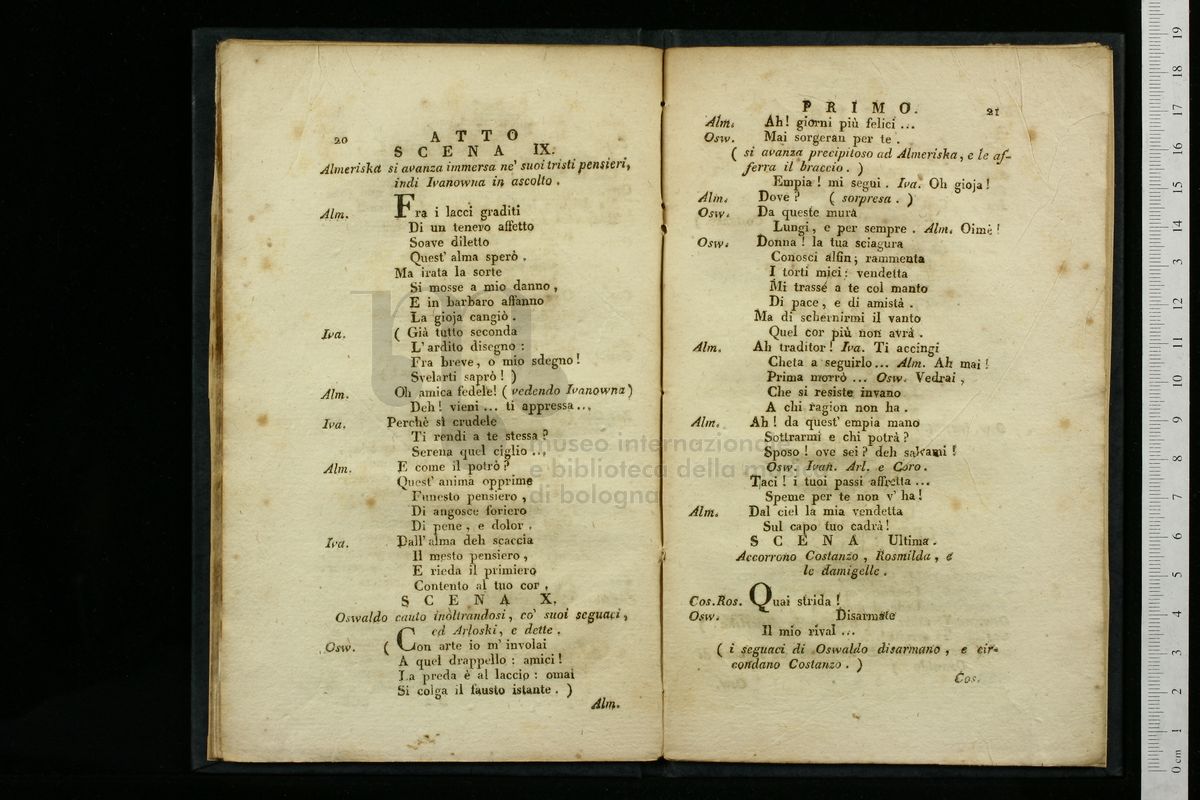 20
ATTO
SCENA IX.
Almeriska si avanza immersa ne' suoi tristi pensieri,
indi Ivanowna in ascolto.
Alm. Fra i lacci graditi
Di un tenero affetto
Soave diletto
Quest' alma sperò.
Ma irata la sorte
Si mosse a mio danno,
E in barbaro affanno
La gioja cangiò.
Iva. ( Già tutto seconda
L' ardito disegno:
Fra breve, o mio sdegno!
Svelarti saprò! )
Alm. Oh amica fedele! ( vedendo Ivanowna )
Deh! vieni ... ti appressa ...
Iva. Perchè sì crudele
Ti rendi a te stessa?
Serena quel ciglio ...
Alm. E come il potrò?
Quest' anima opprime
Funesto pensiero,
Di angosce foriero
Di pene, e dolor.
Iva. Dall' alma deh scaccia
Il mesto pensiero,
E rieda il primiero
Contento al tuo cor.
SCENA X.
Oswaldo cauto inoltrandosi, co' suoi seguaci,
ed Arloski, e dette.
Osw. ( Con arte io m' involai
A quel drappello: amici!
La preda è al laccio: omai
Si colga il fausto istante. )
Alm.
PRIMO. 21
Alm. Ah! giorni più felici ...
Osw. Mai sorgeran per te.
( si avanza precipitoso ad Almeriska, e le af-
ferra il braccio. )
Empia! mi segui. Iva. Oh gioja!
Alm. Dove? ( sorpresa. )
Osw. Da queste mura
Lungi, e per sempre. Alm. Oimè!
Osw. Donna! la tua sciagura
Conosci alfin; rammenta
I torti miei: vendetta
Mi trasse a te col manto
Di pace, e di amistà.
Ma di schernirmi il vanto
Quel cor più non avrà.
Alm. Ah traditor! Iva. Ti accingi
Cheta a seguirlo ... Alm. Ah mai!
Prima morrò ... Osw. Vedrai,
Che si resiste invano
A chi ragion non ha.
Alm. Ah! da quest' empia mano
Sottrarmi e chi potrà?
Sposo! ove sei? deh salvami!
Osw. Ivan. Arl. e Coro.
Taci! i tuoi passi affretta ...
Speme per te non v' ha!
Alm. Dal ciel la mia vendetta
Sul capo tuo cadrà!
SCENA Ultima.
Accorrono Costanzo, Rosmilda, e
le damigelle.
Cos. Ros. Quai strida!
Osw. Disarmate
Il mio rival ...
( i seguaci di Oswaldo disarmano, e cir-
condano Costanzo. )
Cos.
museo internazionale
e biblioteca della musica
di bologna
0 cm 1 2 3 4 5 6 7 8 9 10 11 12 13 14 15 16 17 18 19